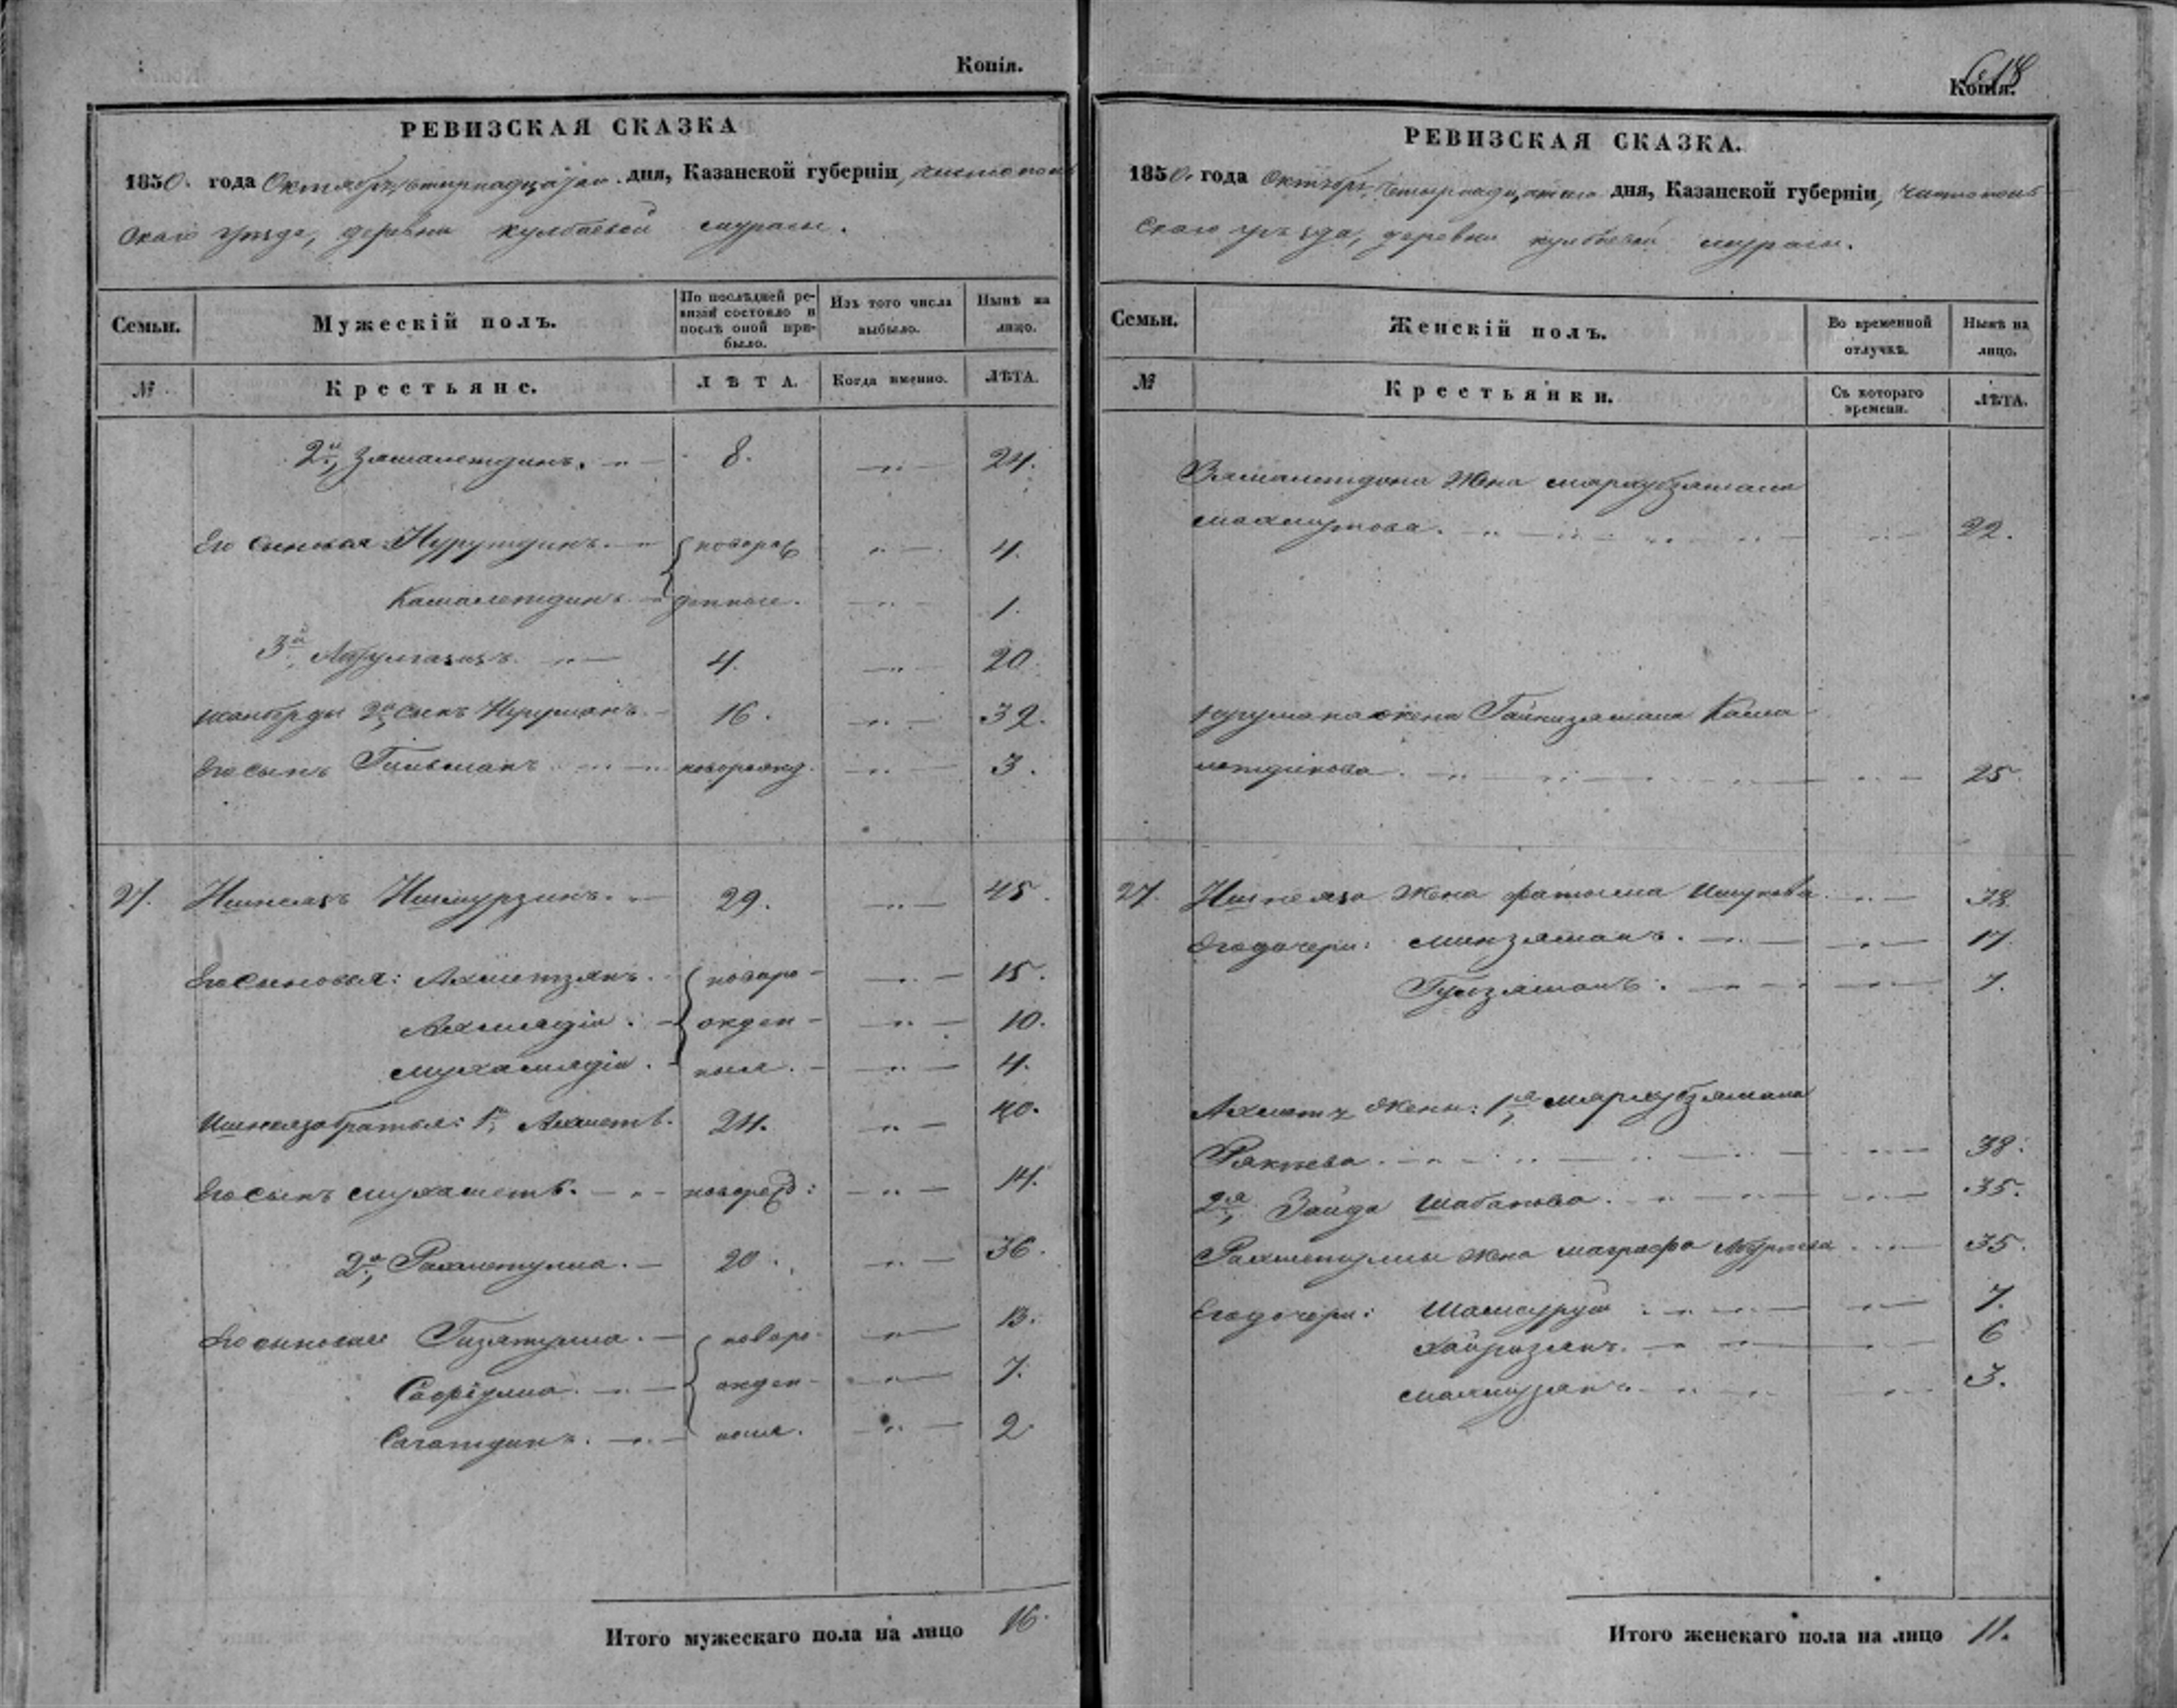 Копія.
РЕВИЗСКАЯ СКАЗКА
1850. года Октября четырнадцатаго дня, Казанской губерніи, Чистополь
скаго уѣзда, деревни Кулбаевой Мурасы.
Семьи. Мужескій полъ. По послѣдней ре-визіи состояло и послѣ оной при-было. Изъ того числа выбыло. Нынѣ на лицо.
№ Крестьяне. ЛѢТА. Когда именно. ЛѢТА.
2й, Зямалетдинъ. 8. 24.
Его сыновья: Нурутдинъ. новорож 4.
Камалетдинъ. денные. 1.
3й, Абулгазизъ. 4. 20.
2й, сынъ Нугуманъ. 16. 32.
Его сынъ Гильманъ новорожд. 3.
27. Ишнязъ Ишмурзинъ. 29. 45.
Его сыновья: Ахметзянъ. новоро- 15.
Ахмадіи. жден- 10.
Мухамядіи. ные. 4.
Ишняза братья: 1й, Ахметъ. 24. 40.
Его сынъ Мухаметъ. новорожд: 14.
2й, Рахметулла. 20. 36.
Его сыновья Гизятулла. новоро- 13.
Сафіулла. жден- 7.
Сагатдинъ. ные. 2.
Итого мужескаго пола на лицо 16.
618
Копія.
РЕВИЗСКАЯ СКАЗКА.
1850. года Октября четырнадцатаго дня, Казанской губерніи, Чистополь
скаго уѣзда, деревни Кулбаевой Мурасы.
Семьи. Женскій полъ. Во временной отлучкѣ. Нынѣ на лицо.
№ Крестьянки. Съ котораго времени. ЛѢТА.
Зямалетдина жена Мархубзямала
Махмутова. 22.
Нугумана жена Гайнизямала Кама
летдинова. 25.
27. Ишняза жена Фатыма Ишукова 38.
Его дочери: Минзямалъ. 17.
Гулзямалъ. 7.
Ахмета жены: 1я, Мархубзямала
38.
2я, Зайда Шабанова. 35.
Рахметуллы жена 35.
Его дочери: 7.
Хайризянъ. 6
3.
Итого женскаго пола на лицо 11.